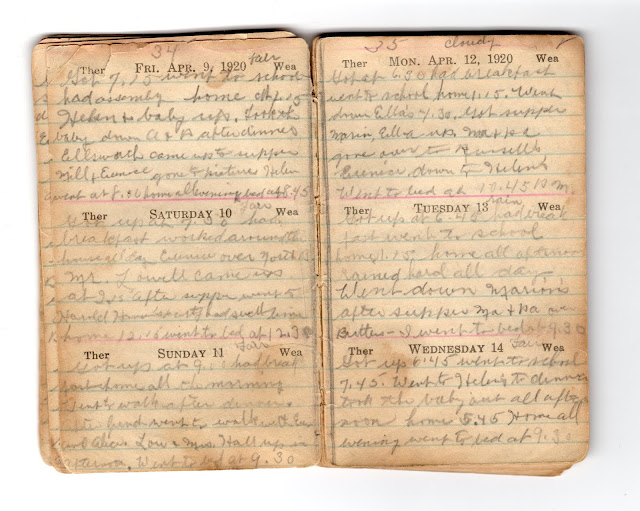 34
Ther FRI. APR. 9, 1920 Wea
Fair
Got 7.15 went to school
had assembly home 1.15
Helen & baby ups.
baby down A & P after dinner
Ellsworth came up to supper
Mill & Eunice gone to pictures Helen
went at 8.30 home all evening bed at 8.45
Ther SATURDAY 10 Wea
Fair
Got up at 9.30 had
breakfast worked around the
house all day Eunice over North
Mr. Lowell came ups
at after supper went to
Harold had swell time
home 12.15 went to bed at 12.30
Ther SUNDAY 11 Wea
Fair
Got up at 9. had break
fast home all the morning
Went to walk after dinner
went to walk with
and Alice Lou & Mrs. Hall up in
afternoon. Went to bed at 9.30
35 cloudy
Ther MON. APR. 12, 1920 Wea
Got up 6.30 had breakfast
went to school home 1.15. Went
down Ella's 4.30. Got supper
Marion, Ella up. Ma & Pa
gone over to Russells
Eunice down to Helens
Went to bed at 10.45 P.M.
Ther TUESDAY 13 Wea
rain
Got up at 6.45 had break
fast went to school
home 1.15. home all afternoon
rained hard all day
Went down Marions
after supper Ma & Pa over
Butters - I went to bed at 9.30
Ther WEDNESDAY 14 Wea
Fair
Got up 6.45 went to school
7.45. Went to Helen's to dinner
took the baby out all after
noon home 5.45 Home all
evening went to bed at 9.30